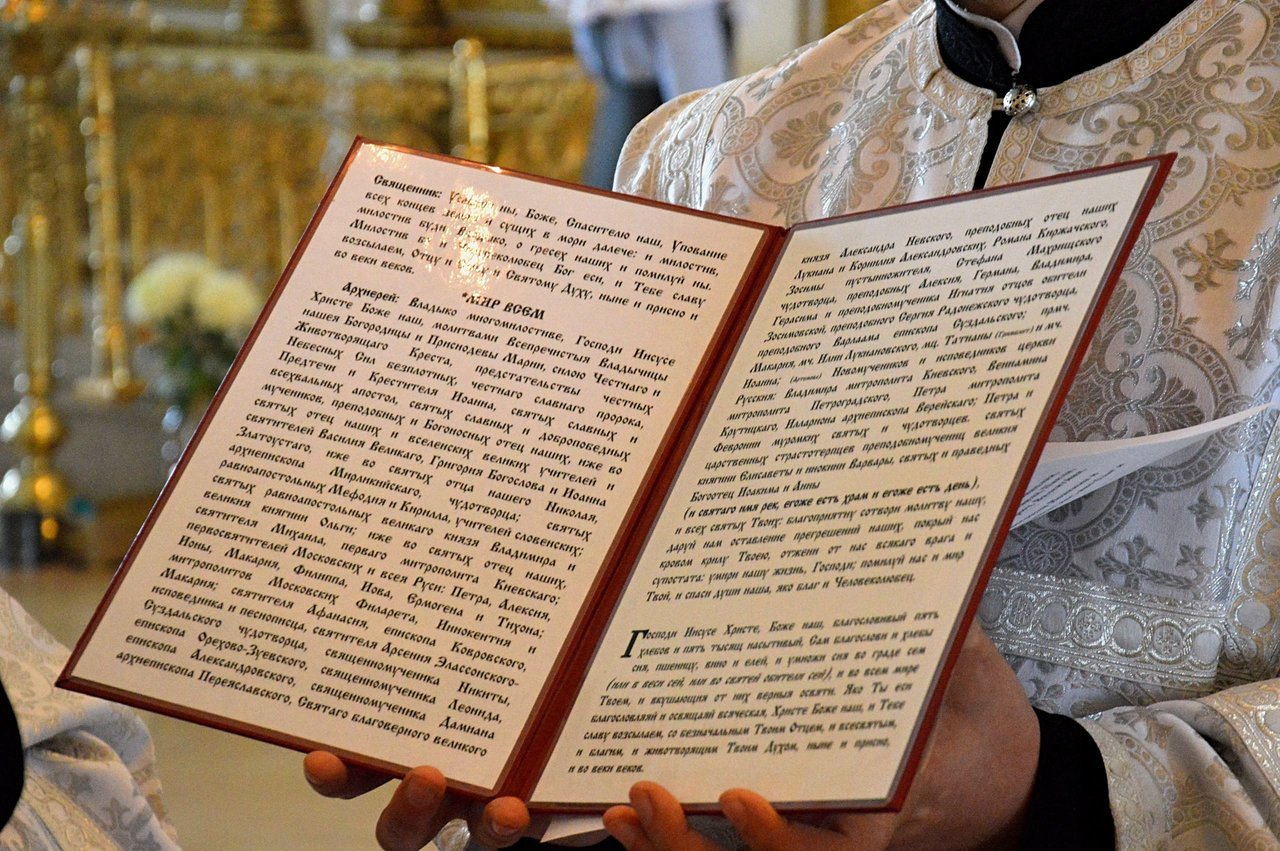 Священник: Услыши ны, Боже, Спасителю наш, Упование
всех концев земли и сущих в мори далече: и милостив,
милостив буди, Владыко, о гресех наших и помилуй ны.
Милостив бо и Человеколюбец Бог еси, и Тебе славу
возсылаем, Отцу и Сыну и Святому Духу, ныне и присно и
во веки веков.
*МИР ВСЕМ
Архиерей: Владыко многомилостиве, Господи Иисусе
Христе Боже наш, молитвами Всепречистыя Владычицы
нашея Богородицы и Приснодевы Марии, силою Честнаго и
Животворящаго Креста, предстательствы честных
Небесных Сил безплотных, честнаго славнаго пророка,
Предтечи и Крестителя Иоанна, святых славных и
всехвальных апостол, святых славных и добропобедных
мучеников, преподобных и Богоносных отец наших, иже во
святых отец наших и вселенских великих учителей и
святителей Василия Великаго, Григория Богослова и Иоанна
Златоустаго, иже во святых отца нашего Николая,
архиепископа Мирликийскаго, чудотворца; святых
равноапостольных Мефодия и Кирилла, учителей словенских;
святых равноапостольных великаго князя Владимира и
великия княгини Ольги; иже во святых отец наших,
святителя Михаила, перваго митрополита Киевскаго;
первосвятителей Московских и всея Руси: Петра, Алексия,
Ионы, Макария, Филиппа, Иова, Ермогена и Тихона;
митрополитов Московских Филарета, Иннокентия и
Макария; святителя Афанасия, епископа Ковровского,
исповедника и песнописца, святителя Арсения Элассонского-
Суздальского чудотворца, священномученика Никиты,
епископа Орехово-Зуевского, священномученика Леонида,
епископа Александровского, священномученика Дамиана
архиепископа Переяславского, Святаго благоверного великого
князя Александра Невского, преподобных отец наших
Лукиана и Корнилия Александровских, Романа Киржачского,
Зосимы пустынножителя, Стефана Махрищского
чудотворца, преподобных Алексия, Германа, Владимира,
Герасима и преподобномученика Игнатия отцов обители
Зосимовской, преподобного Сергия Радонежского чудотворца,
преподобного Варлаама епископа Суздальского; прмч.
Макария, мч. Илии Лукиановского, мц. Татианы и мч.
Иоанна; Новомучеников и исповедников церкви
Русския: Владимира митрополита Киевского, Вениамина
митрополита Петроградского, Петра митрополита
Крутицкаго, Иллариона архиепископа Верейскаго; Петра и
Февронии муромких святых и чудотворцев. святых
царственных страстотерпцев преподобномучениц великия
княгини Елисаветы и инокини Варвары, святых и праведных
Богоотец Иоакима и Анны
(и святаго имя рек, егоже есть храм и егоже есть день),
и всех святых Твоих: благоприятну сотвори молитву нашу,
даруй нам оставление прегрешений наших, покрый нас
кровом крилу Твоею, отжени от нас всякаго врага и
супостата: умири нашу жизнь, Господи; помилуй нас и мир
Твой, и спаси души наша, яко благ и Человеколюбец.
Господи Иисусе Христе, Боже наш, благословивый пять
хлебов и пять тысящ насытивый, Сам благослови и хлебы
сия, пшеницу, вино и елей, и умножи сия во граде сем
(или в веси сей, или во святей обители сей), и во всем мире
Твоем, и вкушающия от них верныя освяти. Яко Ты еси
благословляяй и освящаяй всяческая, Христе Боже наш, и Тебе
славу возсылаем, со безначальным Твоим Отцем, и всесвятым,
и благим, и животворящим Твоим Духом, ныне и присно,
и во веки веков.